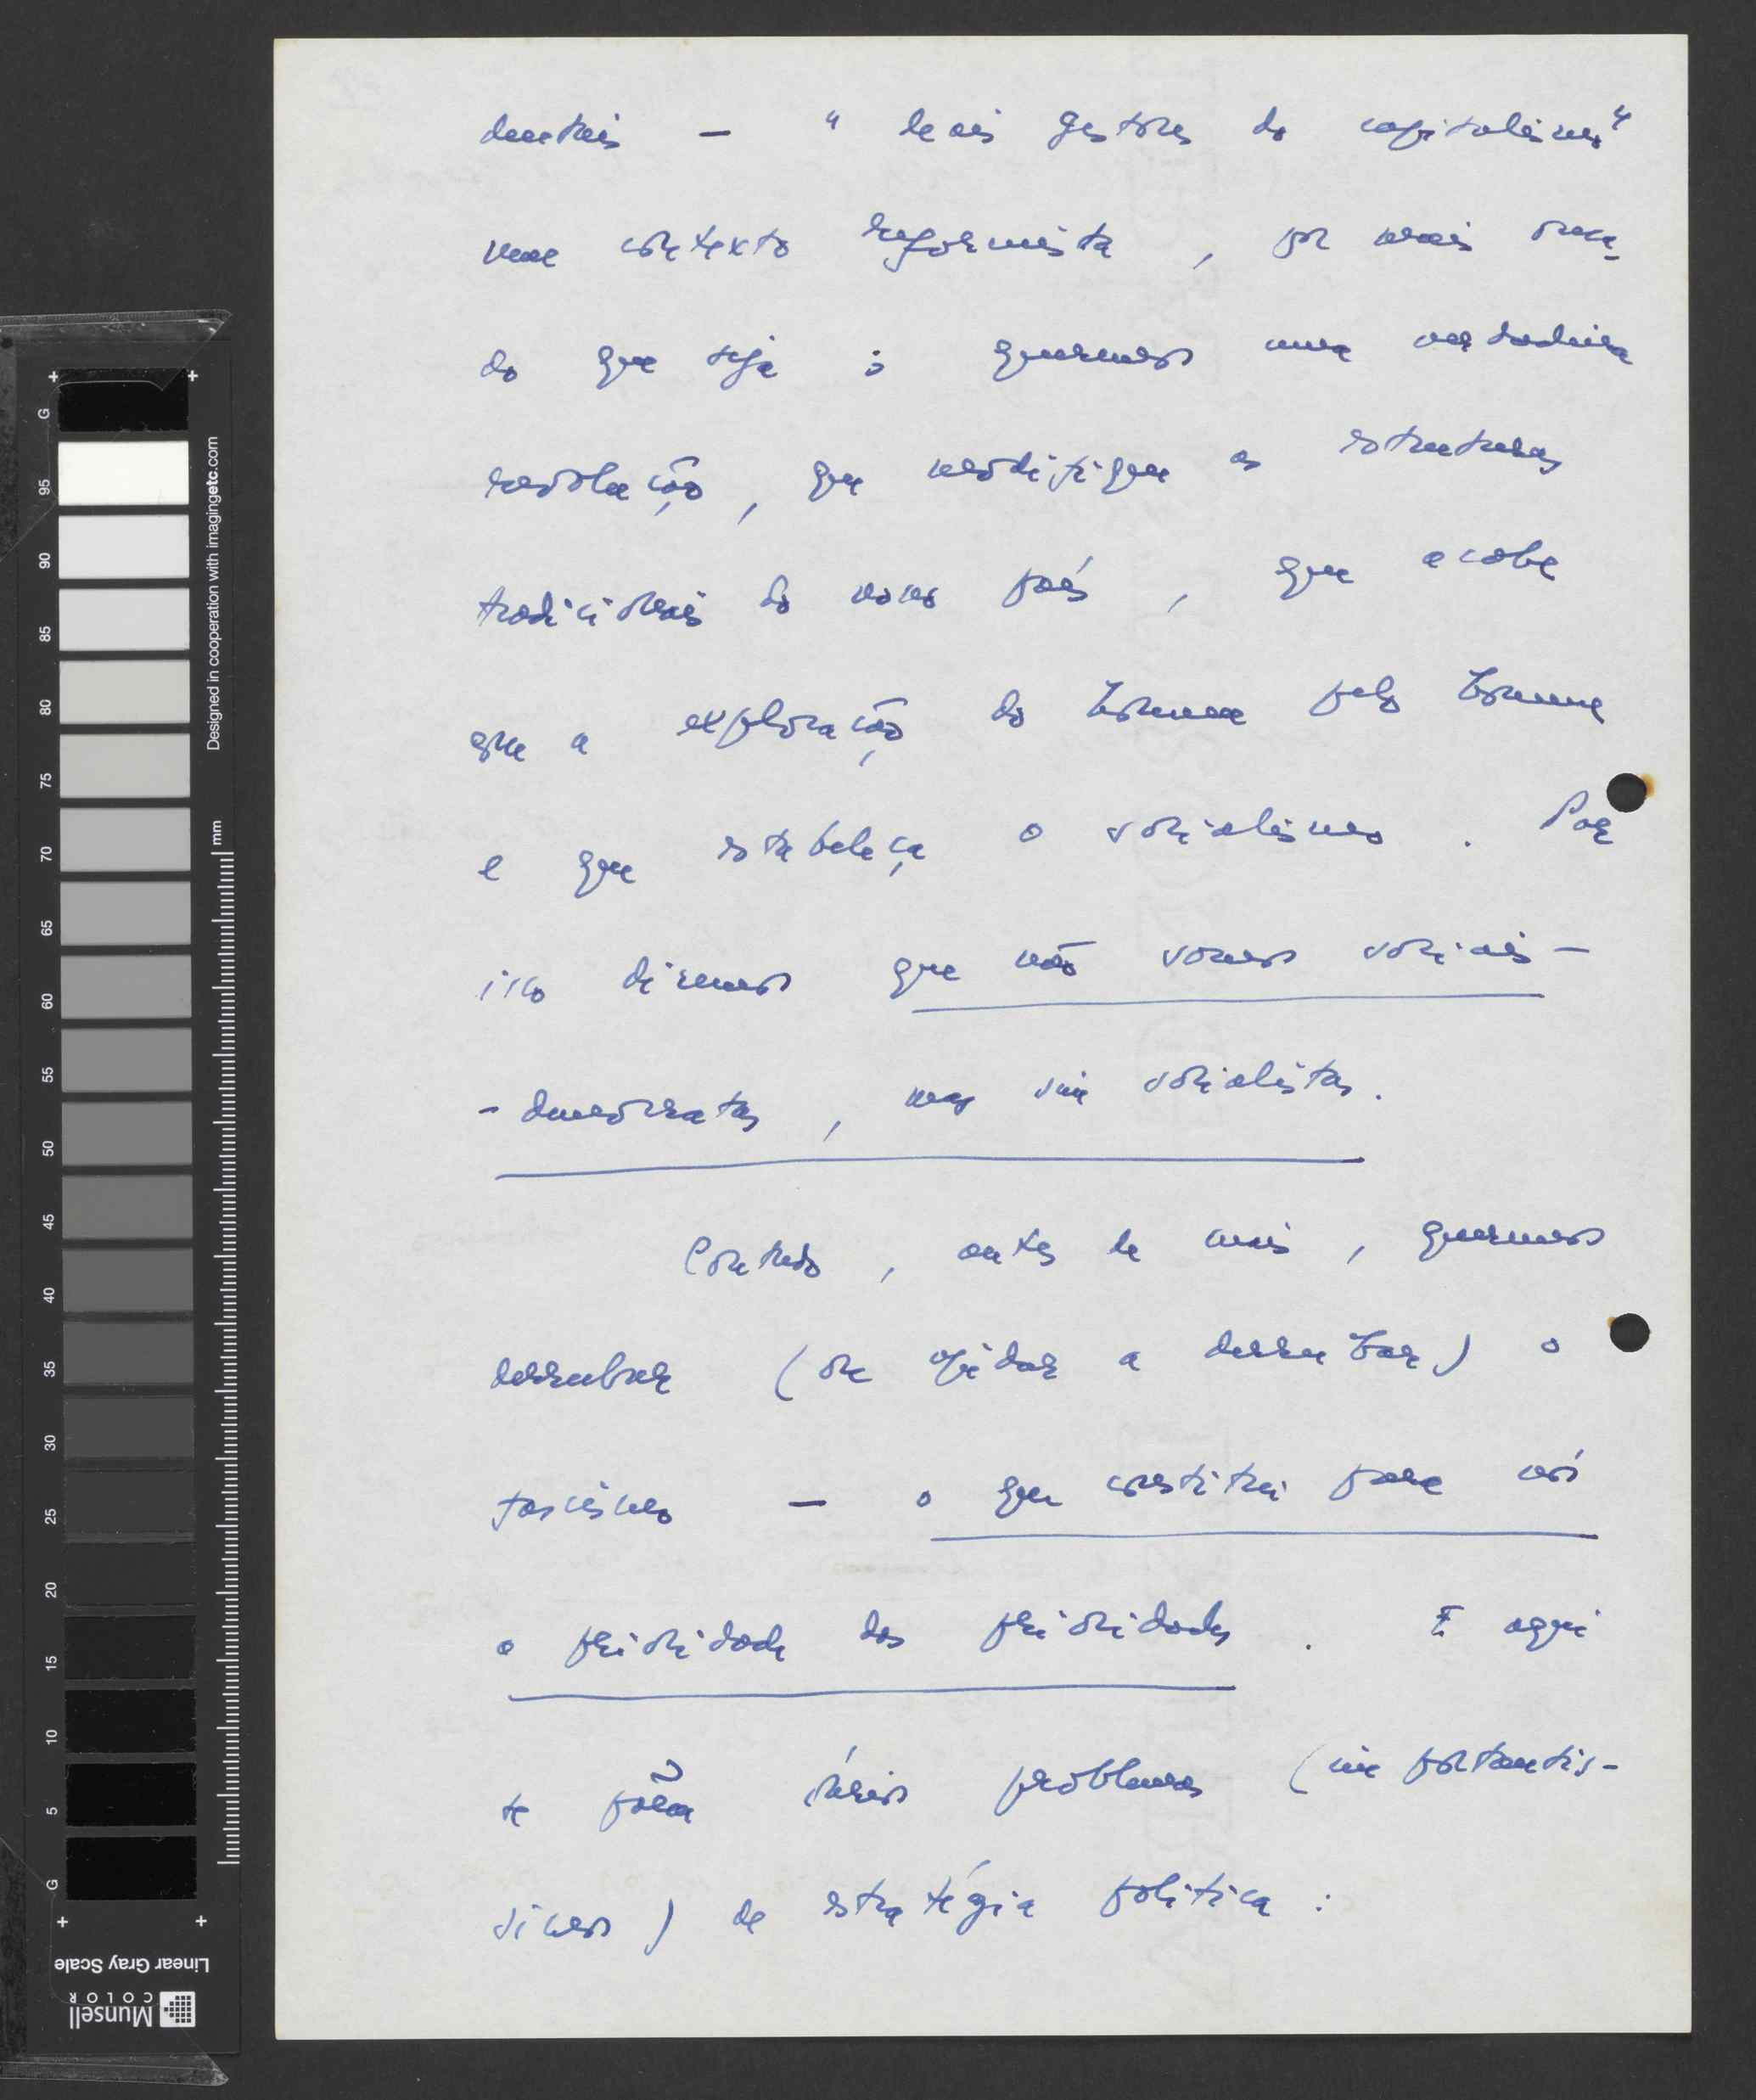 dentais — "leais gestores do capitalismo"
num contexto reformista, por mais ousa-
do que seja; queremos uma verdadeira
revolução, que modifique as estruturas
tradicionais do nosso país, que acabe
que a exploração do homem pelo homem
e que estabeleça o socialismo. Por
isso dizemos que não somos sociais-
-democratas, mas sim socialistas.
Contudo, antes de mais, queremos
derrubar (ou ajudar a derrubar) o
fascismo — o que constitui para nós
a prioridade das prioridades. E aqui
se põem sérios problemas (importantís-
simos) de estratégia política:
G
95
90
85
80
75
70
65
60
55
50
45
40
35
30
25
20
15
10
5
G
mm
Designed in cooperation with imagingetc.com
Linear Gray Scale
Munsell
COLOR